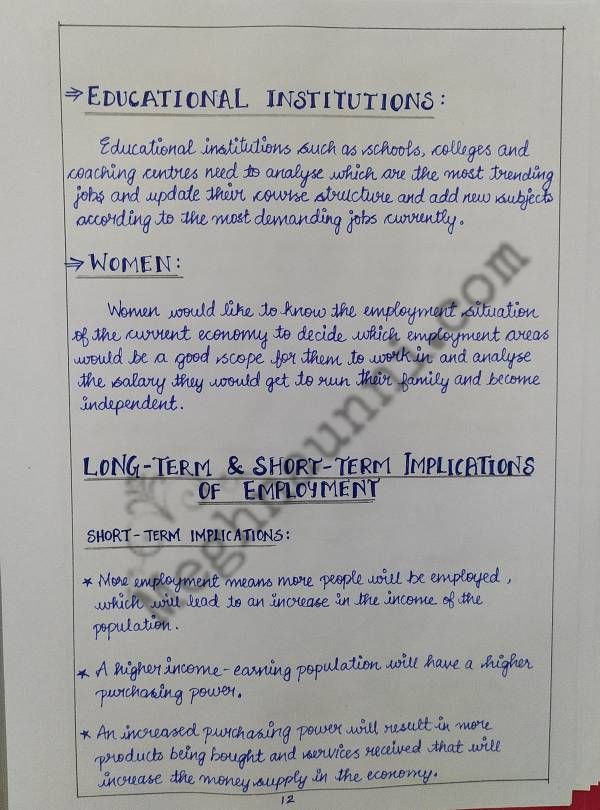 ⇒ EDUCATIONAL INSTITUTIONS:
Educational institutions such as schools, colleges and
coaching centres need to analyse which are the most trending
jobs and update their course structure and add new subjects
according to the most demanding jobs currently.
⇒ WOMEN:
Women would like to know the employment situation
of the current economy to decide which employment areas
would be a good scope for them to work in and analyse
the salary they would get to run their family and become
independent.
LONG-TERM & SHORT-TERM IMPLICATIONS
OF EMPLOYMENT
SHORT-TERM IMPLICATIONS:
* More employment means more people will be employed,
which will lead to an increase in the income of the
population.
* A higher income-earning population will have a higher
purchasing power.
* An increased purchasing power will result in more
products being bought and services received that will
increase the money supply in the economy.
12